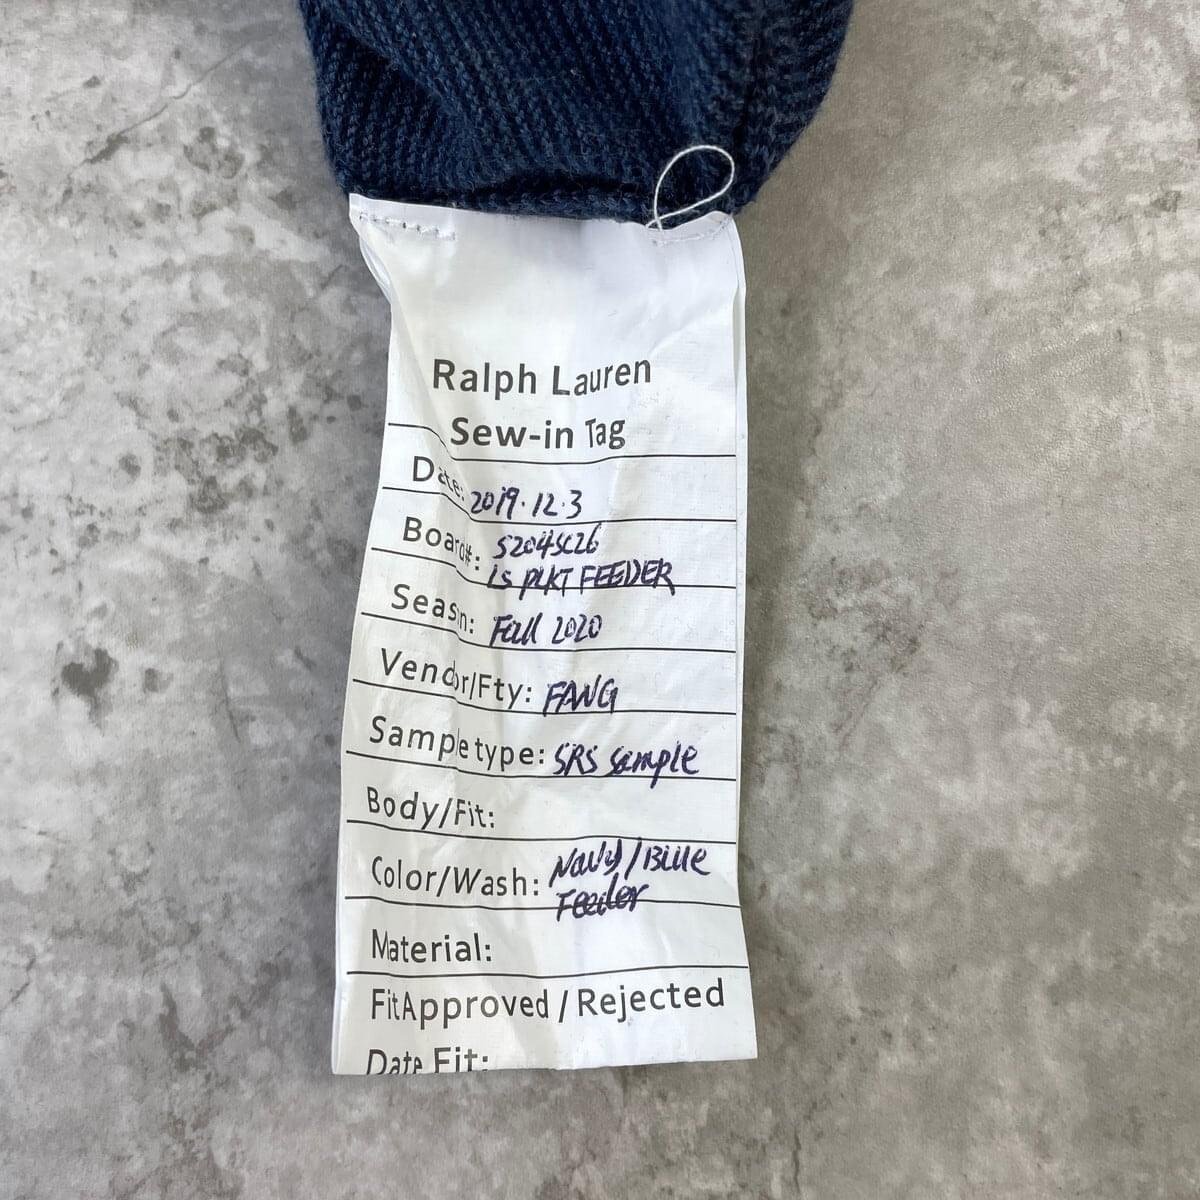 Ralph Lauren
Sew-in Tag
Date: 2019.12.3
Board#: S204SC26
LS PLKT FEEDER
Season: Fall 2020
Vendor/Fty: FANG
Sampletype: SRS sample
Body/Fit:
Color/Wash: Navy/Blue
Feeder
Material:
FitApproved / Rejected
Date Fit: